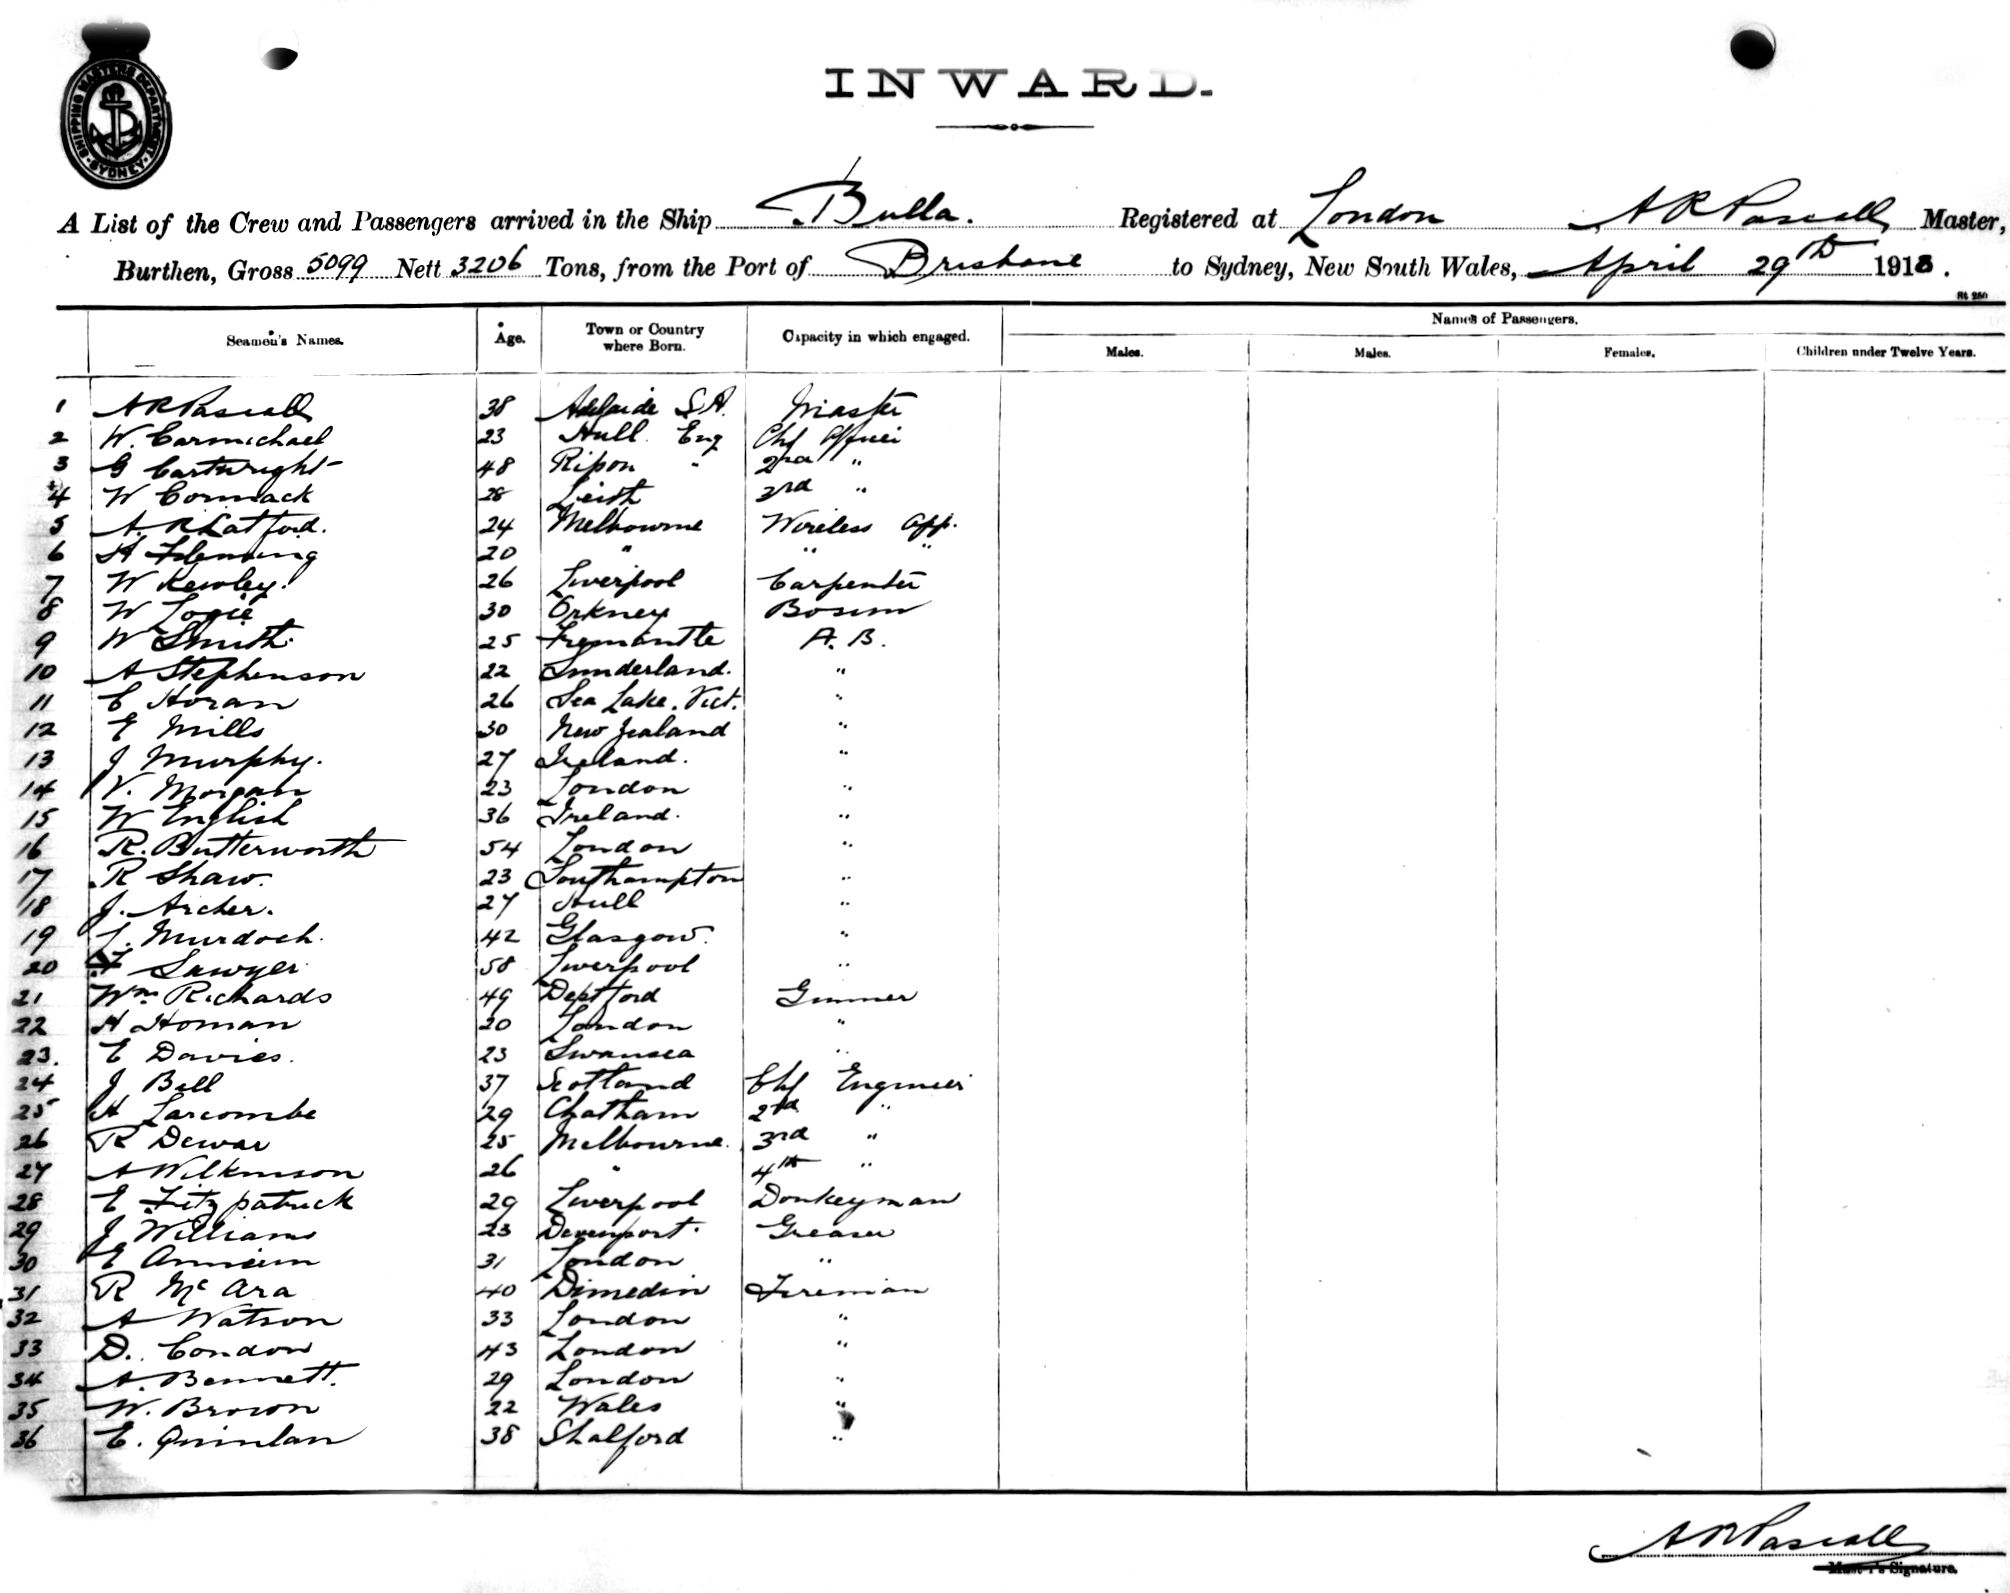 SHIPPING MASTERS DEPARTMENT · SYDNEY ·
INWARD.
A List of the Crew and Passengers arrived in the Ship Bulla. Registered at London A R Pascall Master,
Burthen, Gross 5099 Nett 3206 Tons, from the Port of Brisbane to Sydney, New South Wales, April 29th 1918.
Rt 250
Seamen's Names. Age. Town or Country where Born. Capacity in which engaged. Names of Passengers.
Males. Males. Females. Children under Twelve Years.
1 A R Pascall 38 Adelaide S.A. Master
2 W. Carmichael 23 Hull Eng Chf Officer
3 G Cartwright 48 Ripon " 2nd "
4 W Cormack 28 Leith 3rd "
5 A. R Latford. 24 Melbourne Wireless Opp.
6 H Fleming 20 " " "
7 W Kewley. 26 Liverpool Carpenter
8 W Logie 30 Orkney Bosun
9 W Smith. 25 Fremantle A. B.
10 A Stephenson 22 Sunderland. "
11 C Horan 26 Sea Lake. Vict. "
12 E Mills 30 New Zealand "
13 J Murphy. 27 Ireland. "
14 V. Morgan 23 London "
15 W English 36 Ireland. "
16 R. Butterworth 54 London "
17 R Shaw. 23 Southampton "
18 J. Archer. 27 Hull "
19 J. Murdoch. 42 Glasgow. "
20 Sawyer 58 Liverpool "
21 Wm Richards 49 Deptford Gunner
22 H Homan 20 London "
23. E Davies. 23 Swansea "
24 J Bell 37 Scotland Chf Engineer
25 H Larcombe 29 Chatham 2nd "
26 R Dewar 25 Melbourne. 3rd "
27 A Wilkinson 26 " 4th "
28 E Fitzpatrick 29 Liverpool Donkeyman
29 J Williams 23 Devenport. Greaser
30 E 31 London "
31 R McAra 40 Dunedin Fireman
32 A Watson 33 London "
33 D. Condon 43 London "
34 A. Bennett. 29 London "
35 W. Brown 22 Wales "
36 E. Quinlan 38 Shalford "
A R Pascall
Master's Signature.